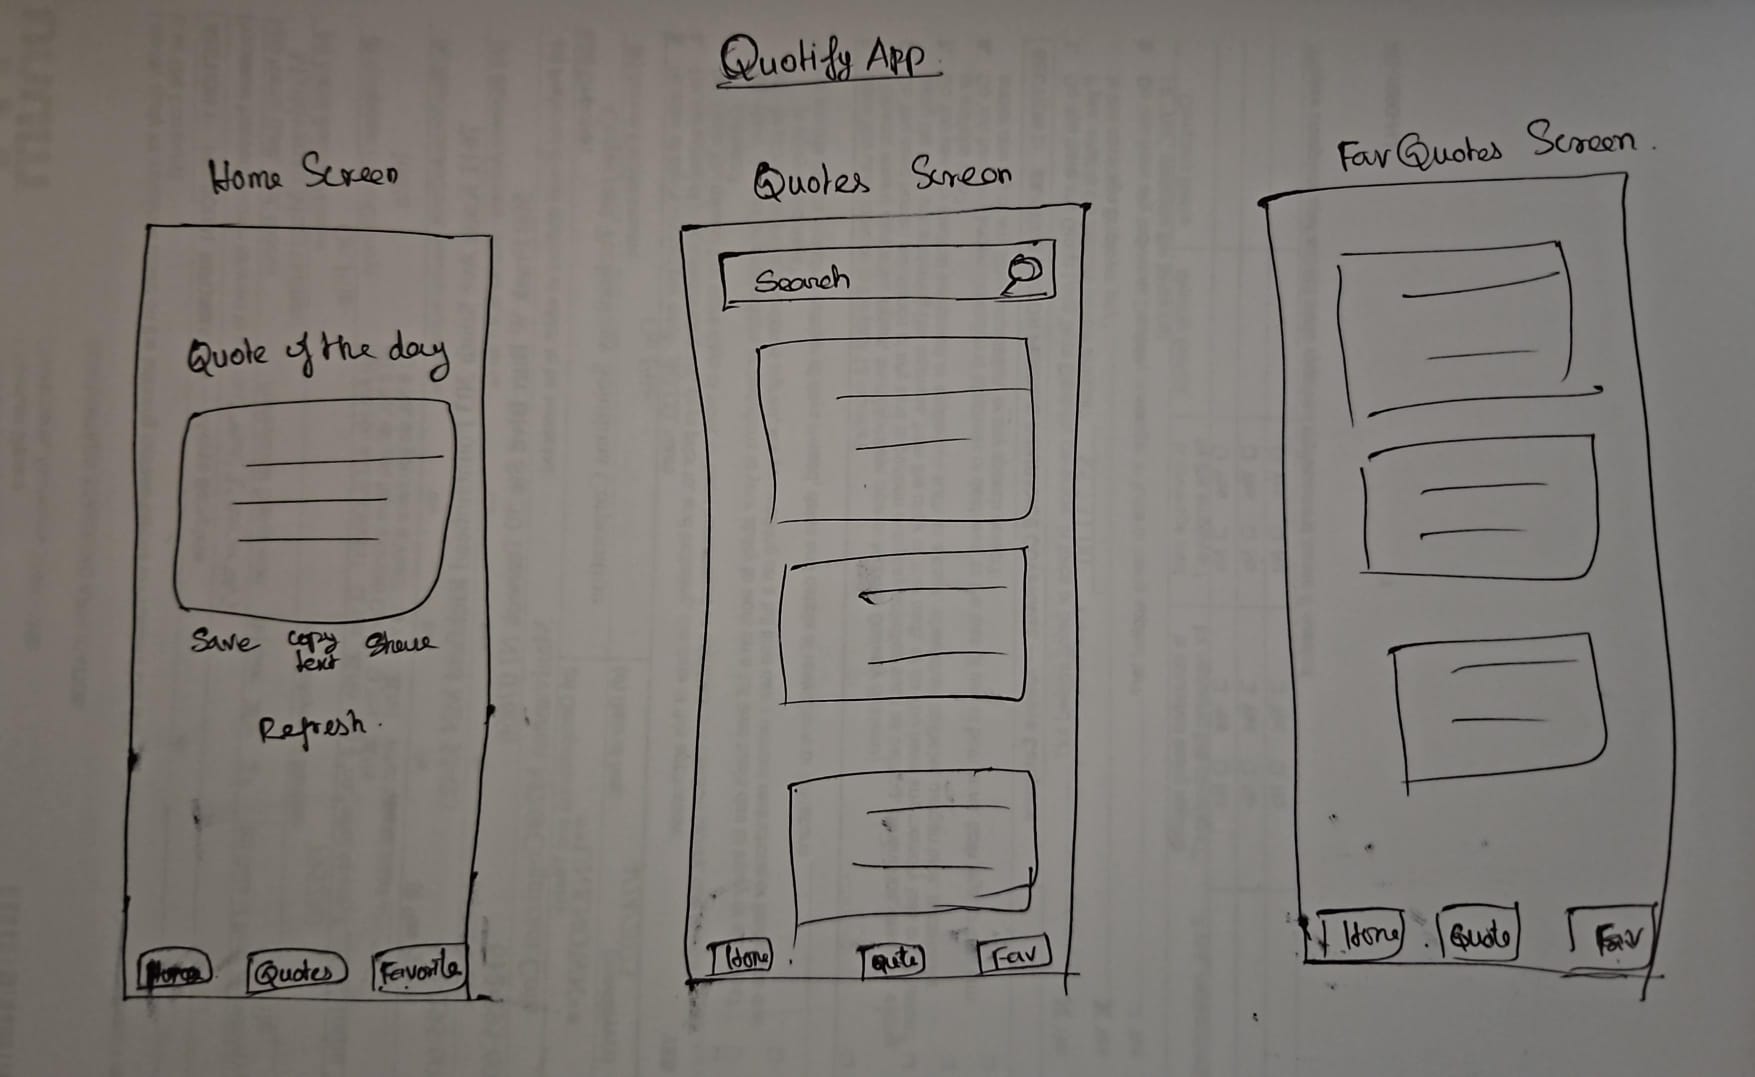 Quotify App
Home Screen
Quote of the day
Save copy text Share
Refresh.
Home Quotes Favorite
Quotes Screen
Search
Home Quote Fav
Fav Quotes Screen.
Home Quote Fav